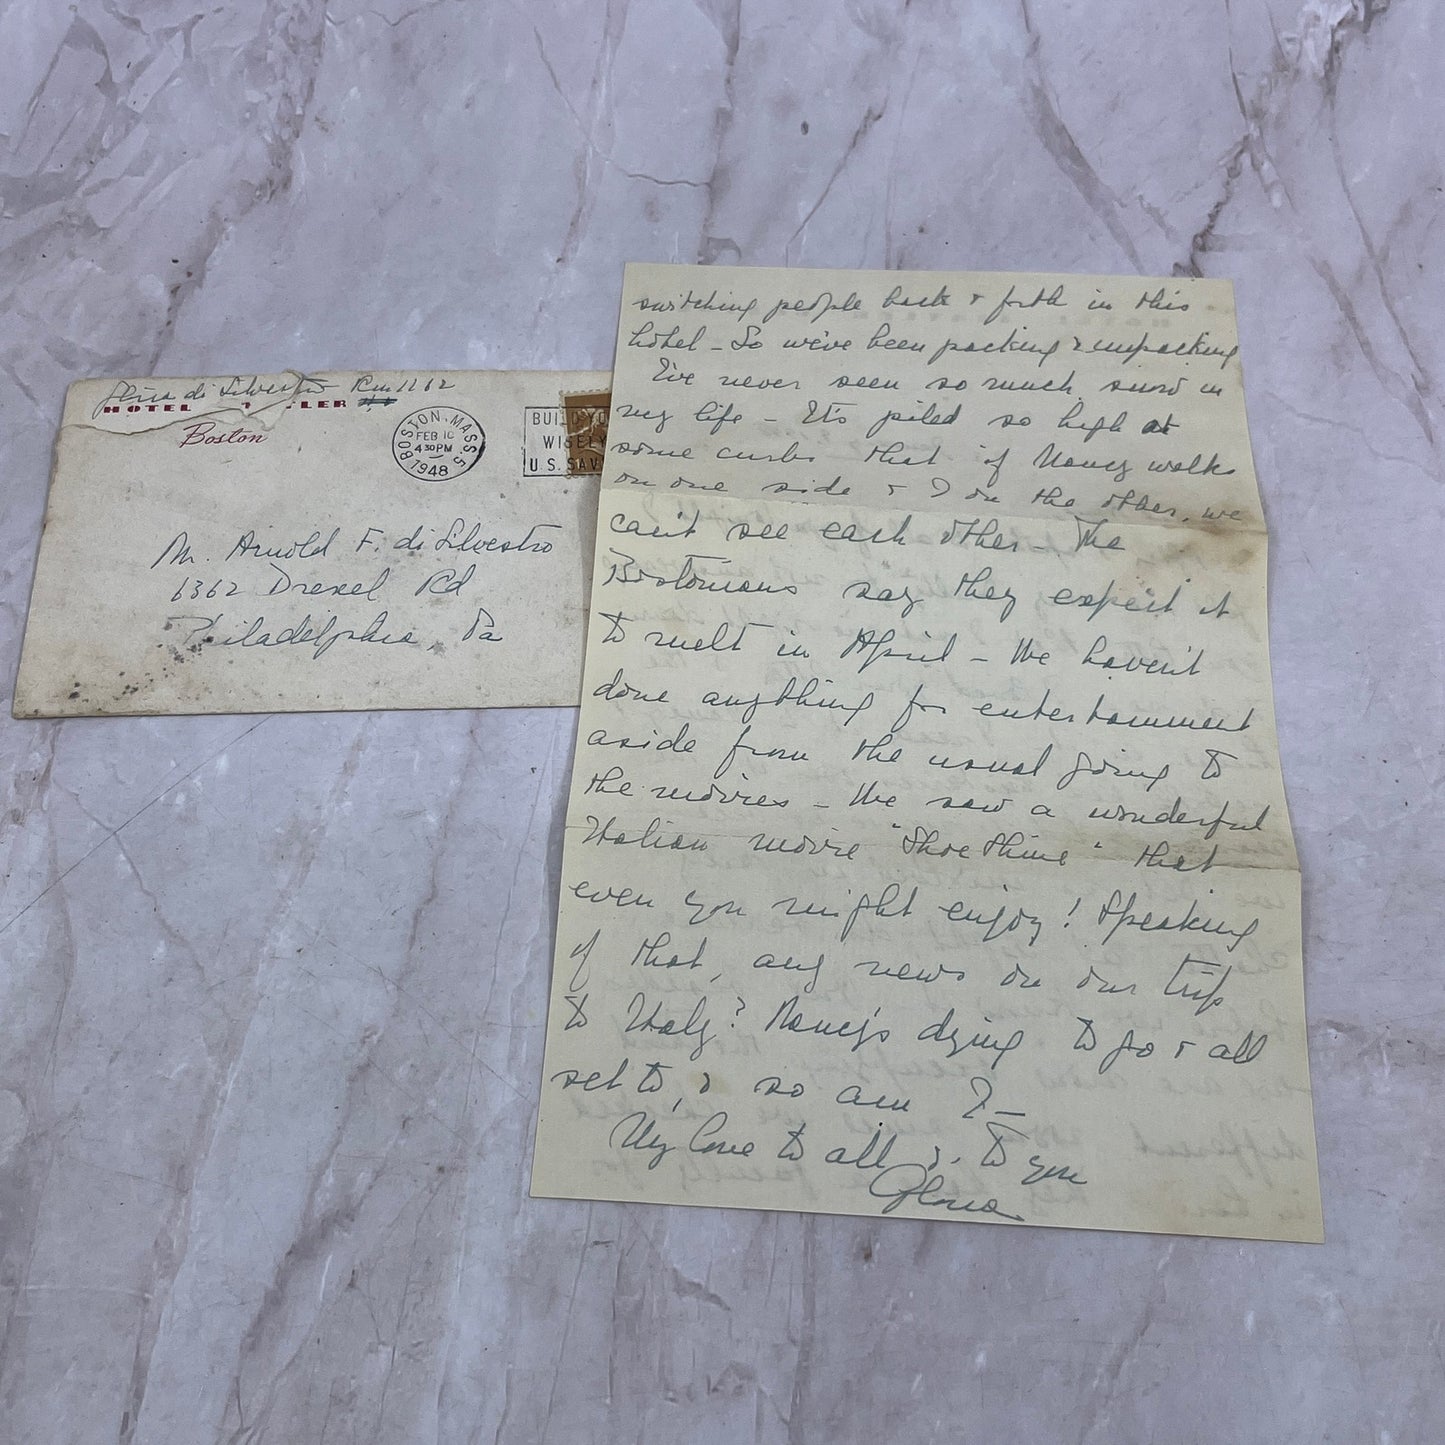 di Silvestro Rm 1162
HOTEL LER
Boston
BOSTON, MASS. 5
FEB 10
4 30 PM
1948
BUILD YO
WISELY
U.S. SAV
Mr. Arnold F. di Silvestro
6362 Drexel Rd
Philadelphia, Pa
switching people back & forth in this
hotel – So we've been packing & unpacking
I've never seen so much snow in
my life – It's piled so high at
some curbs that if Nancy walks
on one side & I on the other, we
can't see each other – The
Bostonians say they expect it
to melt in April – We haven't
done anything for entertainment
aside from the usual going to
the movies – We saw a wonderful
Italian movie "Shoe Shine" that
even you might enjoy! Speaking
of that, any news on our trip
to Italy? Nancy's dying to go & all
set to, & so am I –
My love to all & to you
Gloria